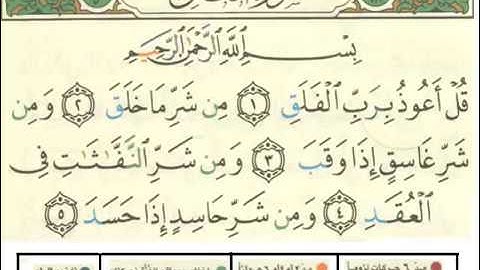 بِسْمِ ٱللَّهِ ٱلرَّحْمَٰنِ ٱلرَّحِيمِ
قُلْ أَعُوذُ بِرَبِّ ٱلْفَلَقِ ١ مِن شَرِّ مَا خَلَقَ ٢ وَمِن
شَرِّ غَاسِقٍ إِذَا وَقَبَ ٣ وَمِن شَرِّ ٱلنَّفَّٰثَٰتِ فِى
ٱلْعُقَدِ ٤ وَمِن شَرِّ حَاسِدٍ إِذَا حَسَدَ ٥
مد ٦ حركات لزوماً